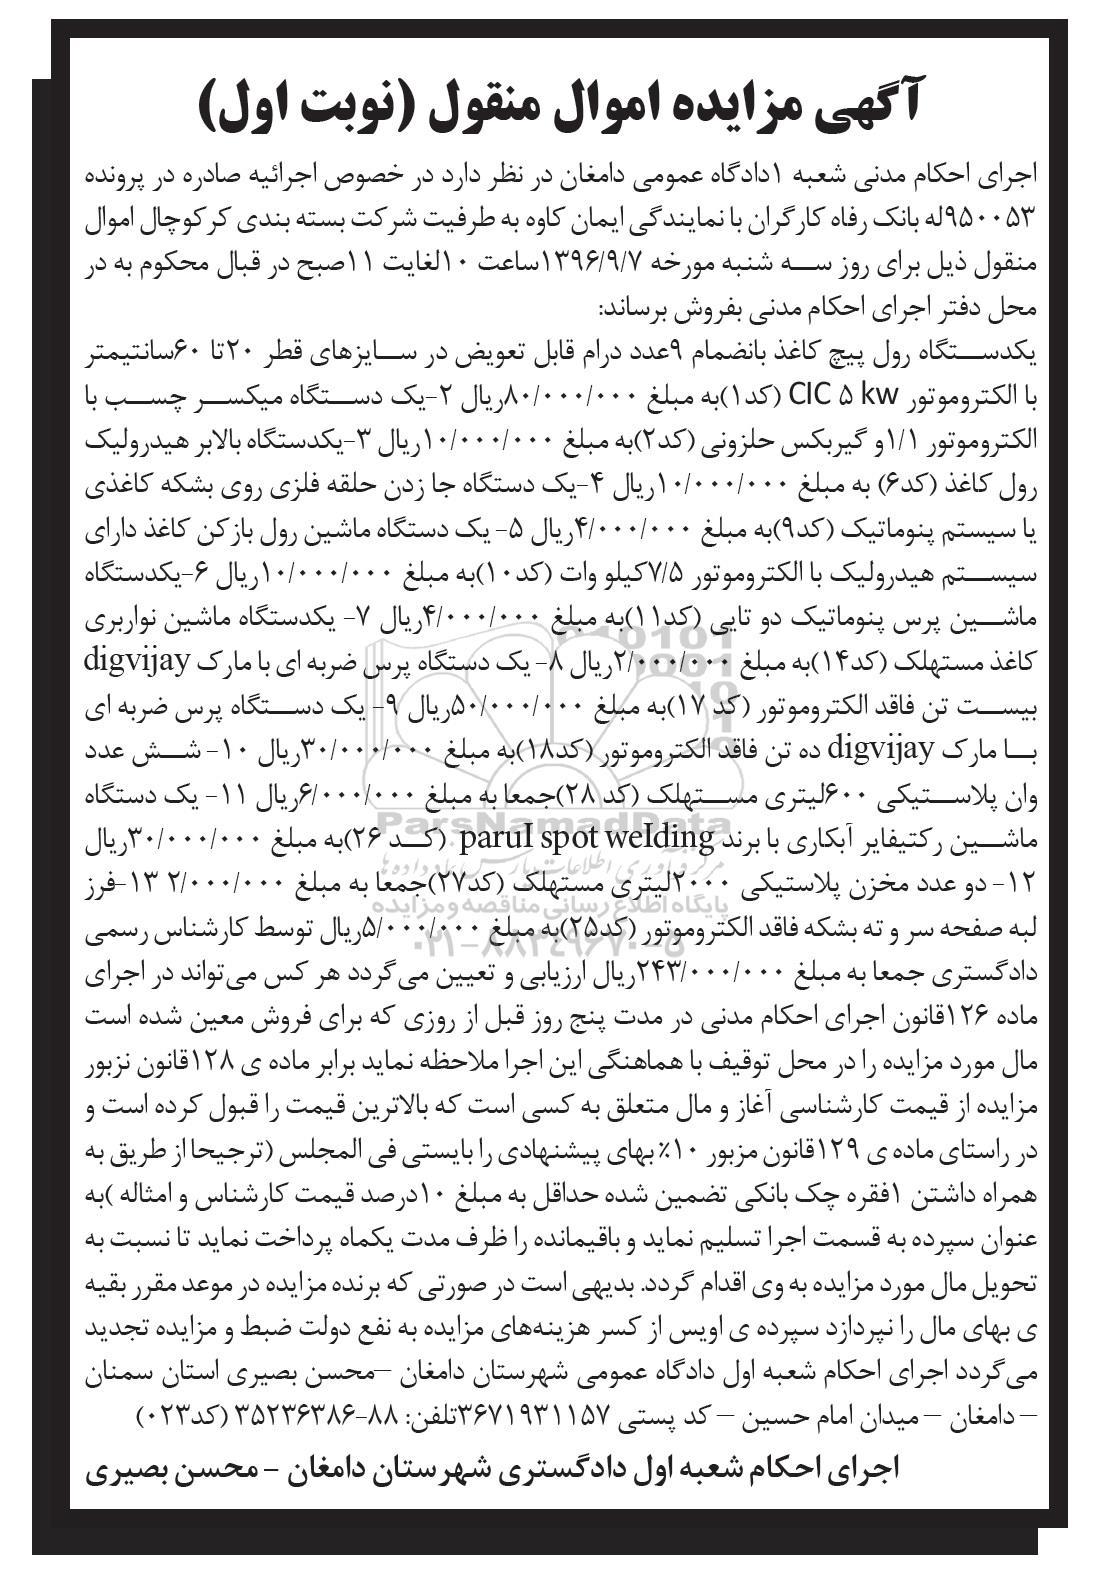 آگهی مزایده اموال منقول (نوبت اول)
اجرای احکام مدنی شعبه ۱دادگاه عمومی دامغان در نظر دارد در خصوص اجرائیه صادره در پرونده
۹۵۰۰۵۳له بانک رفاه کارگران با نمایندگی ایمان کاوه به طرفیت شرکت بسته بندی کرکوچال اموال
منقول ذیل برای روز سه شنبه مورخه ۱۳۹۶/۹/۷ساعت ۱۰لغایت ۱۱صبح در قبال محکوم به در
محل دفتر اجرای احکام مدنی بفروش برساند:
یکدستگاه رول پیچ کاغذ بانضمام ۹عدد درام قابل تعویض در سایزهای قطر ۲۰تا ۶۰سانتیمتر
با الکتروموتور CIC ۵ kw (کد۱)به مبلغ ۸۰/۰۰۰/۰۰۰ریال ۲-یک دستگاه میکسر چسب با
الکتروموتور ۱/۱و گیربکس حلزونی (کد۲)به مبلغ ۱۰/۰۰۰/۰۰۰ریال ۳-یکدستگاه بالابر هیدرولیک
رول کاغذ (کد۶) به مبلغ ۱۰/۰۰۰/۰۰۰ریال ۴-یک دستگاه جا زدن حلقه فلزی روی بشکه کاغذی
یا سیستم پنوماتیک (کد۹)به مبلغ ۴/۰۰۰/۰۰۰ریال ۵- یک دستگاه ماشین رول بازکن کاغذ دارای
سیستم هیدرولیک با الکتروموتور ۷/۵کیلو وات (کد۱۰)به مبلغ ۱۰/۰۰۰/۰۰۰ریال ۶-یکدستگاه
ماشین پرس پنوماتیک دو تایی (کد۱۱)به مبلغ ۴/۰۰۰/۰۰۰ریال ۷- یکدستگاه ماشین نواربری
کاغذ مستهلک (کد۱۴)به مبلغ ۲/۰۰۰/۰۰۰ریال ۸- یک دستگاه پرس ضربه ای با مارک digvijay
بیست تن فاقد الکتروموتور (کد ۱۷)به مبلغ ۵۰/۰۰۰/۰۰۰ریال ۹- یک دستگاه پرس ضربه ای
با مارک digvijay ده تن فاقد الکتروموتور (کد۱۸)به مبلغ ۳۰/۰۰۰/۰۰۰ریال ۱۰- شش عدد
وان پلاستیکی ۶۰۰لیتری مستهلک (کد ۲۸)جمعا به مبلغ ۶/۰۰۰/۰۰۰ریال ۱۱- یک دستگاه
ماشین رکتیفایر آبکاری با برند paruI spot weIding (کد ۲۶)به مبلغ ۳۰/۰۰۰/۰۰۰ریال
۱۲- دو عدد مخزن پلاستیکی ۲۰۰۰لیتری مستهلک (کد۲۷)جمعا به مبلغ ۲/۰۰۰/۰۰۰ ۱۳-فرز
لبه صفحه سر و ته بشکه فاقد الکتروموتور (کد۲۵)به مبلغ ۵/۰۰۰/۰۰۰ریال توسط کارشناس رسمی
دادگستری جمعا به مبلغ ۲۴۳/۰۰۰/۰۰۰ریال ارزیابی و تعیین می گردد هر کس می‌تواند در اجرای
ماده ۱۲۶قانون اجرای احکام مدنی در مدت پنج روز قبل از روزی که برای فروش معین شده است
مال مورد مزایده را در محل توقیف با هماهنگی این اجرا ملاحظه نماید برابر ماده ی ۱۲۸قانون نزبور
مزایده از قیمت کارشناسی آغاز و مال متعلق به کسی است که بالاترین قیمت را قبول کرده است و
در راستای ماده ی ۱۲۹قانون مزبور ۱۰٪ بهای پیشنهادی را بایستی فی المجلس (ترجیحا از طریق به
همراه داشتن ۱فقره چک بانکی تضمین شده حداقل به مبلغ ۱۰درصد قیمت کارشناس و امثاله )به
عنوان سپرده به قسمت اجرا تسلیم نماید و باقیمانده را ظرف مدت یکماه پرداخت نماید تا نسبت به
تحویل مال مورد مزایده به وی اقدام گردد. بدیهی است در صورتی که برنده مزایده در موعد مقرر بقیه
ی بهای مال را نپردازد سپرده ی اویس از کسر هزینه‌های مزایده به نفع دولت ضبط و مزایده تجدید
می‌گردد اجرای احکام شعبه اول دادگاه عمومی شهرستان دامغان –محسن بصیری استان سمنان
– دامغان – میدان امام حسین – کد پستی ۳۶۷۱۹۳۱۱۵۷تلفن: ۸۸-۳۵۲۳۶۳۸۶ (کد۰۲۳)
اجرای احکام شعبه اول دادگستری شهرستان دامغان - محسن بصیری
ParsNamadData
مرکز فرآوری اطلاعات پارس نماد داده ها
پایگاه اطلاع رسانی مناقصه و مزایده
۰۲۱-۸۸۳۴۹۶۷۰-۵